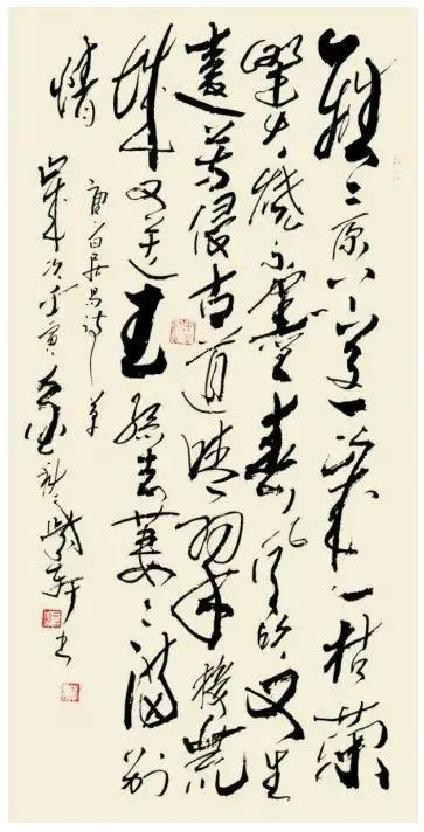 離〻原上草一歲一枯榮
野火燒不盡春風吹又生
遠芳侵古道晴翠接荒
城又送王孫去萋〻滿別
情
唐白居易詩
歲次